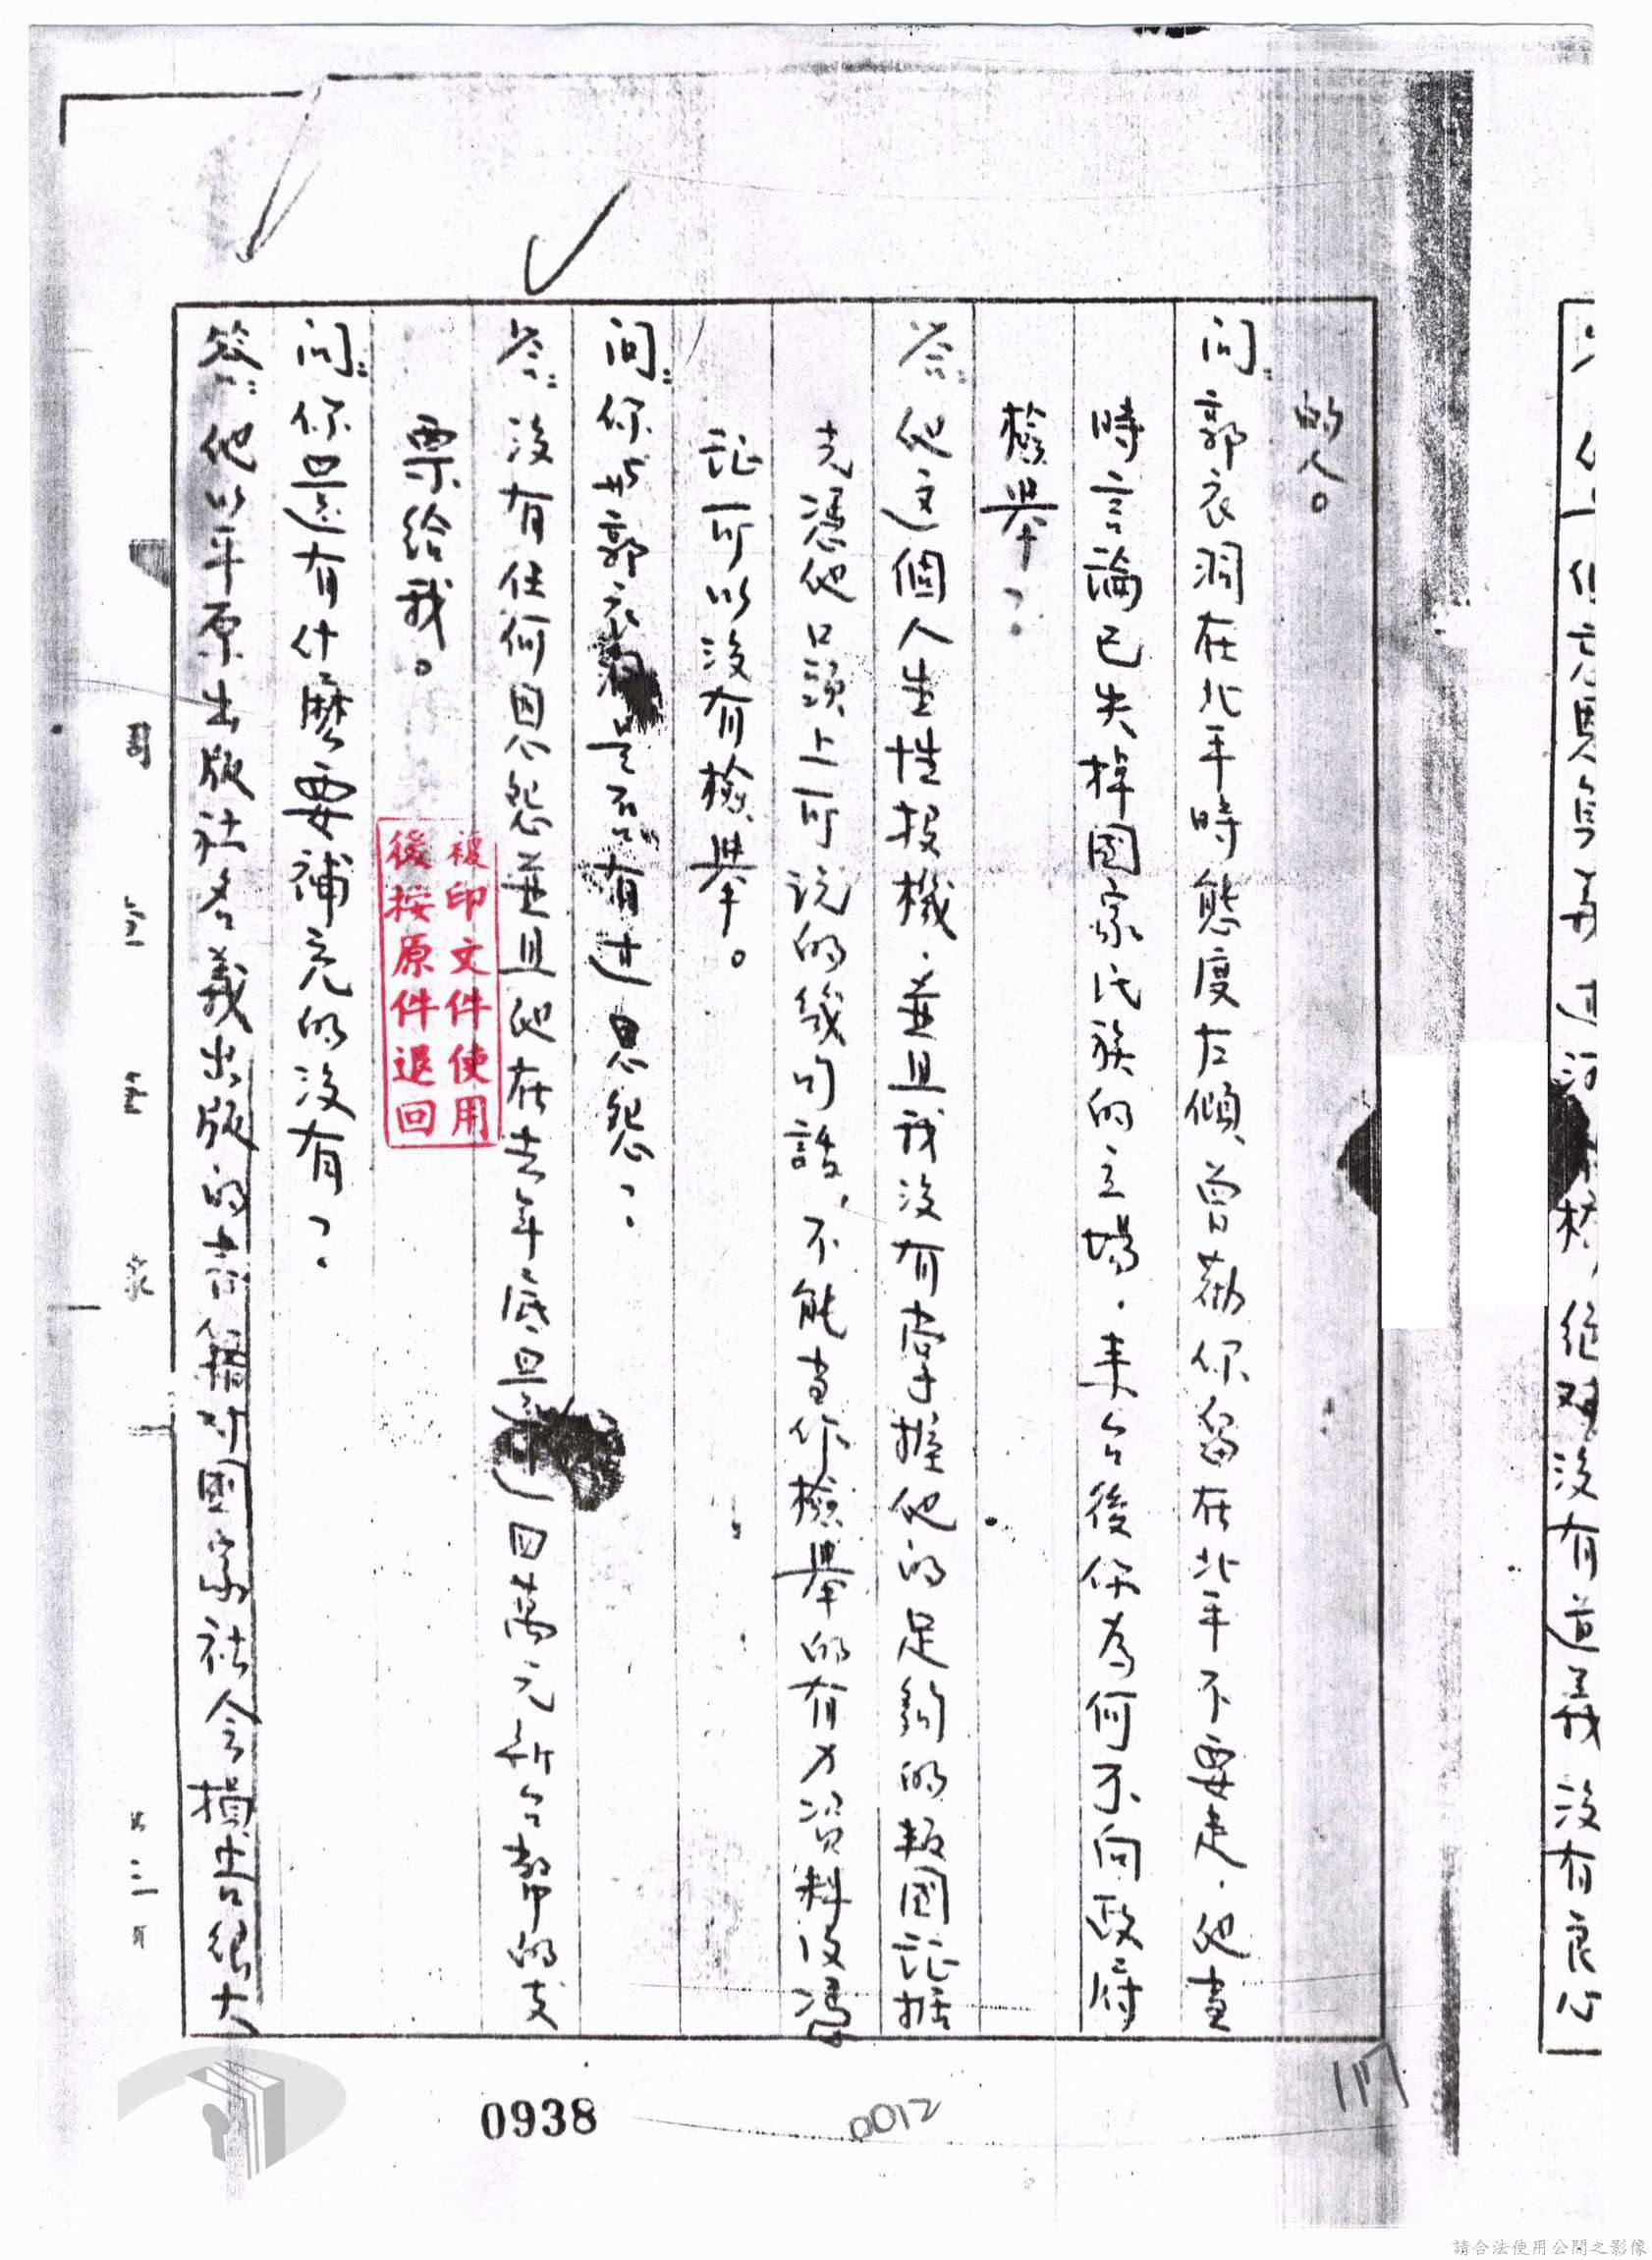 的人。
問：郭衣洞在北平時態度左傾、曾勸你留在北平不要走，他當
時言論已失掉國家民族的立場，来台後你為何不向政府
檢舉？
答：他这個人生性投機，並且我沒有掌握他的足夠的叛國証據
光憑他口頭上所说的幾句話，不能当作檢舉的有力資料沒憑
証所以沒有檢舉。
問：你与郭衣洞是否有过恩怨？
答：沒有任何恩怨並且他在去年底还还我四萬元新台幣的支
票給我。
問：你还有什麼要補充的沒有？
答：他以平原出版社名義出版的書籍对國家社会損害很大
絕对沒有道義沒有良心
被印文件使用
後按原件退回
共 三 頁
0938
0012
117
請合法使用公開之影像